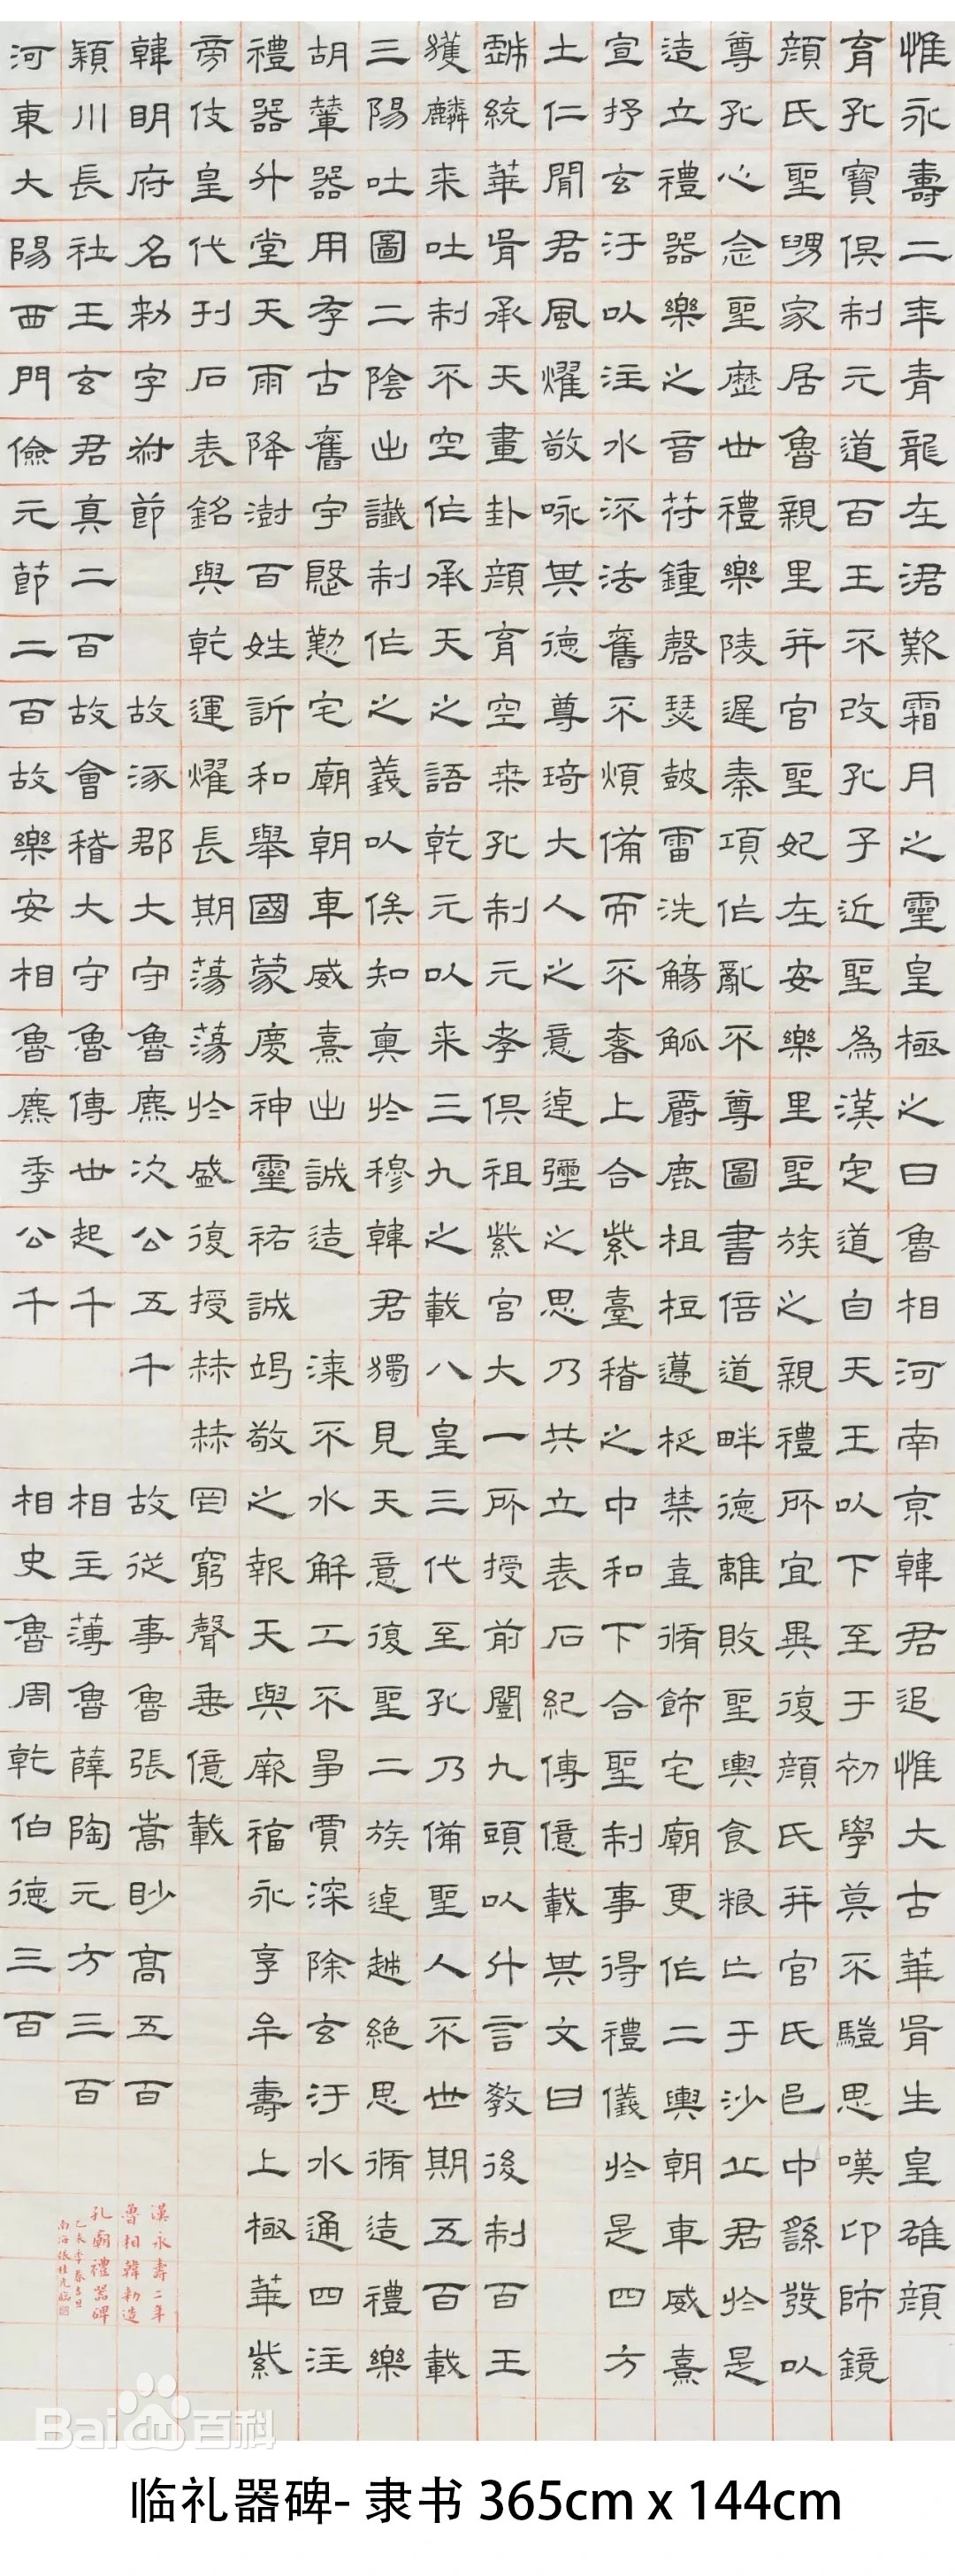 惟永壽二年青龍在涒歎霜月之靈皇極之日魯相河南京韓君追惟大古華胥生皇雄顏
育孔寶俱制元道百王不改孔子近聖為漢定道自天王以下至于初學莫不驥思嘆卬師鏡
顏氏聖舅家居魯親里并官聖妃在安樂里聖族之親禮所宜異復顏氏并官氏邑中繇發以
尊孔心念聖歷世禮樂陵遲秦項作亂不尊圖書倍道畔德離敗聖輿食粮亡于沙丘君於是
造立禮器樂之音苻鍾磬瑟鼓雷洗觴觚爵鹿柤梪籩柉禁壴脩飾宅廟更作二輿朝車威熹
宣抒玄汙以注水流法舊不煩備而不奢上合紫臺稽之中和下合聖制事得禮儀於是四方
土仁聞君風燿敬咏其德尊琦大人之意逴彌之思乃共立表石紀傳億載其文曰
戲統華胥承天畫卦顏育空桑孔制元孝俱祖紫宮大一所授前闓九頭以升言教後制百王
獲麟來吐制不空作承天之語乾元以來三九之載八皇三代至孔乃備聖人不世期五百載
三陽吐圖二陰出讖制作之義以俟知奧於穆韓君獨見天意復聖二族逴越絕思脩造禮樂
胡輦器用存古舊宇慇懃宅廟朝車威熹出誠造 漆不水解工不爭賈深除玄汙水通四注
禮器升堂天雨降澍百姓訢和舉國蒙慶神靈祐誠竭敬之報天與厥福永享牟壽上極華紫
旁伎皇代刊石表銘與乾運燿長期蕩蕩於盛復授赫赫罔窮聲垂億載
韓明府名勑字叔節 故涿郡大守魯麃次公五千 故從事魯張嵩眇高五百
潁川長社王玄君真二百故會稽大守魯傅世起千 相主薄魯薛陶元方三百
河東大陽西門儉元節二百故樂安相魯麃季公千 相史魯周乾伯德三百
漢永壽二年
魯相韓勑造
孔廟禮器碑
乙未季春吉旦
南海張桂光臨
Bai du 百科
临礼器碑- 隶书 365cm x 144cm